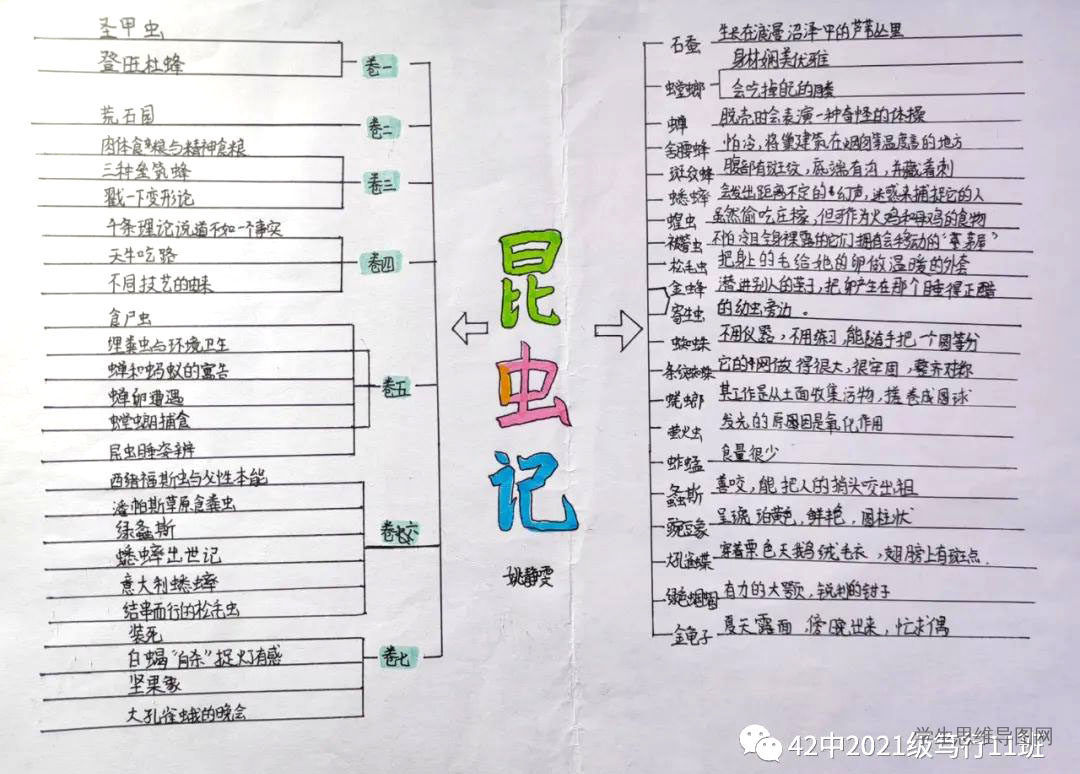 圣甲虫
登旺杜蜂
卷一
荒石园
卷二
肉体食粮与精神食粮
三种垒筑蜂
戳一下变形论
卷三
千条理论说道不如一个事实
天牛吃路
不同技艺的由来
卷四
食尸虫
埋粪虫与环境卫生
蝉和蚂蚁的寓言
蝉卵遭遇
螳螂捕食
昆虫睡姿辨
卷五
西绪福斯虫与父性本能
潘帕斯草原食粪虫
绿螽斯
蟋蟀出世记
意大利蟋蟀
结串而行的松毛虫
卷六
装死
白蝎“自杀”捉灯有感
坚果象
大孔雀蛾的晚会
卷七
昆虫记
姚静雯
石蚕
生长在泥曼沼泽中的芦苇丛里
螳螂
身材娴美优雅
会吃掉自己的
蝉
脱壳时会表演一种奇怪的体操
舍腰蜂
怕冷，将巢建筑在烟囱等温度高的地方
斑纹蜂
腹部有斑纹，底端有沟，并藏着刺
蟋蟀
会发出距离不定的幻声，迷惑来捕捉它的人
蝗虫
虽然偷吃庄稼，但可作为火鸡和母鸡的食物
被管虫
不怕冷且全身裸露的它们拥有会移动的“茅草屋”
松毛虫
把身上的毛给她的卵做温暖的外套
金蜂
寄生虫
潜进别人的巢子，把卵产在那个睡得正酣
的幼虫旁边。
蜘蛛
不用仪器，不用练习，能随手把一个圆等分
条纹蜘蛛
它的网做得很大，很牢固，整齐对称
蜣螂
其工作是从土面收集污物，搓卷成圆球
萤火虫
发光的原因是氧化作用
蚱蜢
食量很少
螽斯
喜咬，能把人的指头咬出组
豌豆象
呈琥珀黄色，鲜艳，圆柱状
大孔雀蝶
穿着栗色天鹅绒毛衣，翅膀上有斑点
有力的大颚，锐利的钳子
金龟子
夏天露面，傍晚出来，忙求偶
42中2021级笃行11班
学生思维导图网